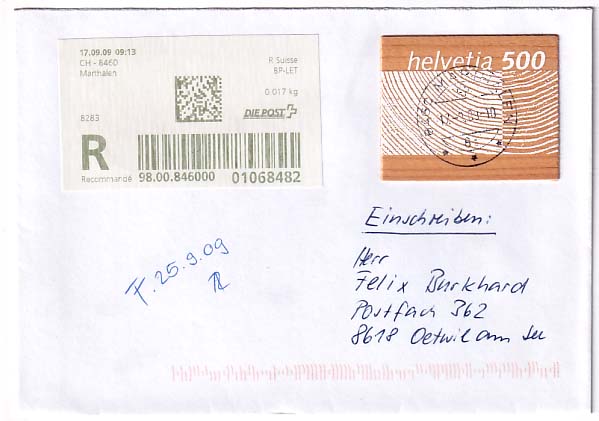 17.09.09 09:13
CH - 8460
Marthalen
R Suisse
BP-LET
0.017 kg
8283
DIE POST
R
Recommandé
98.00.846000
01068482
helvetia 500
Einschreiben:
Herr
Felix Burkhard
Postfach 362
8618 Oetwil am See
F. 25.9.09